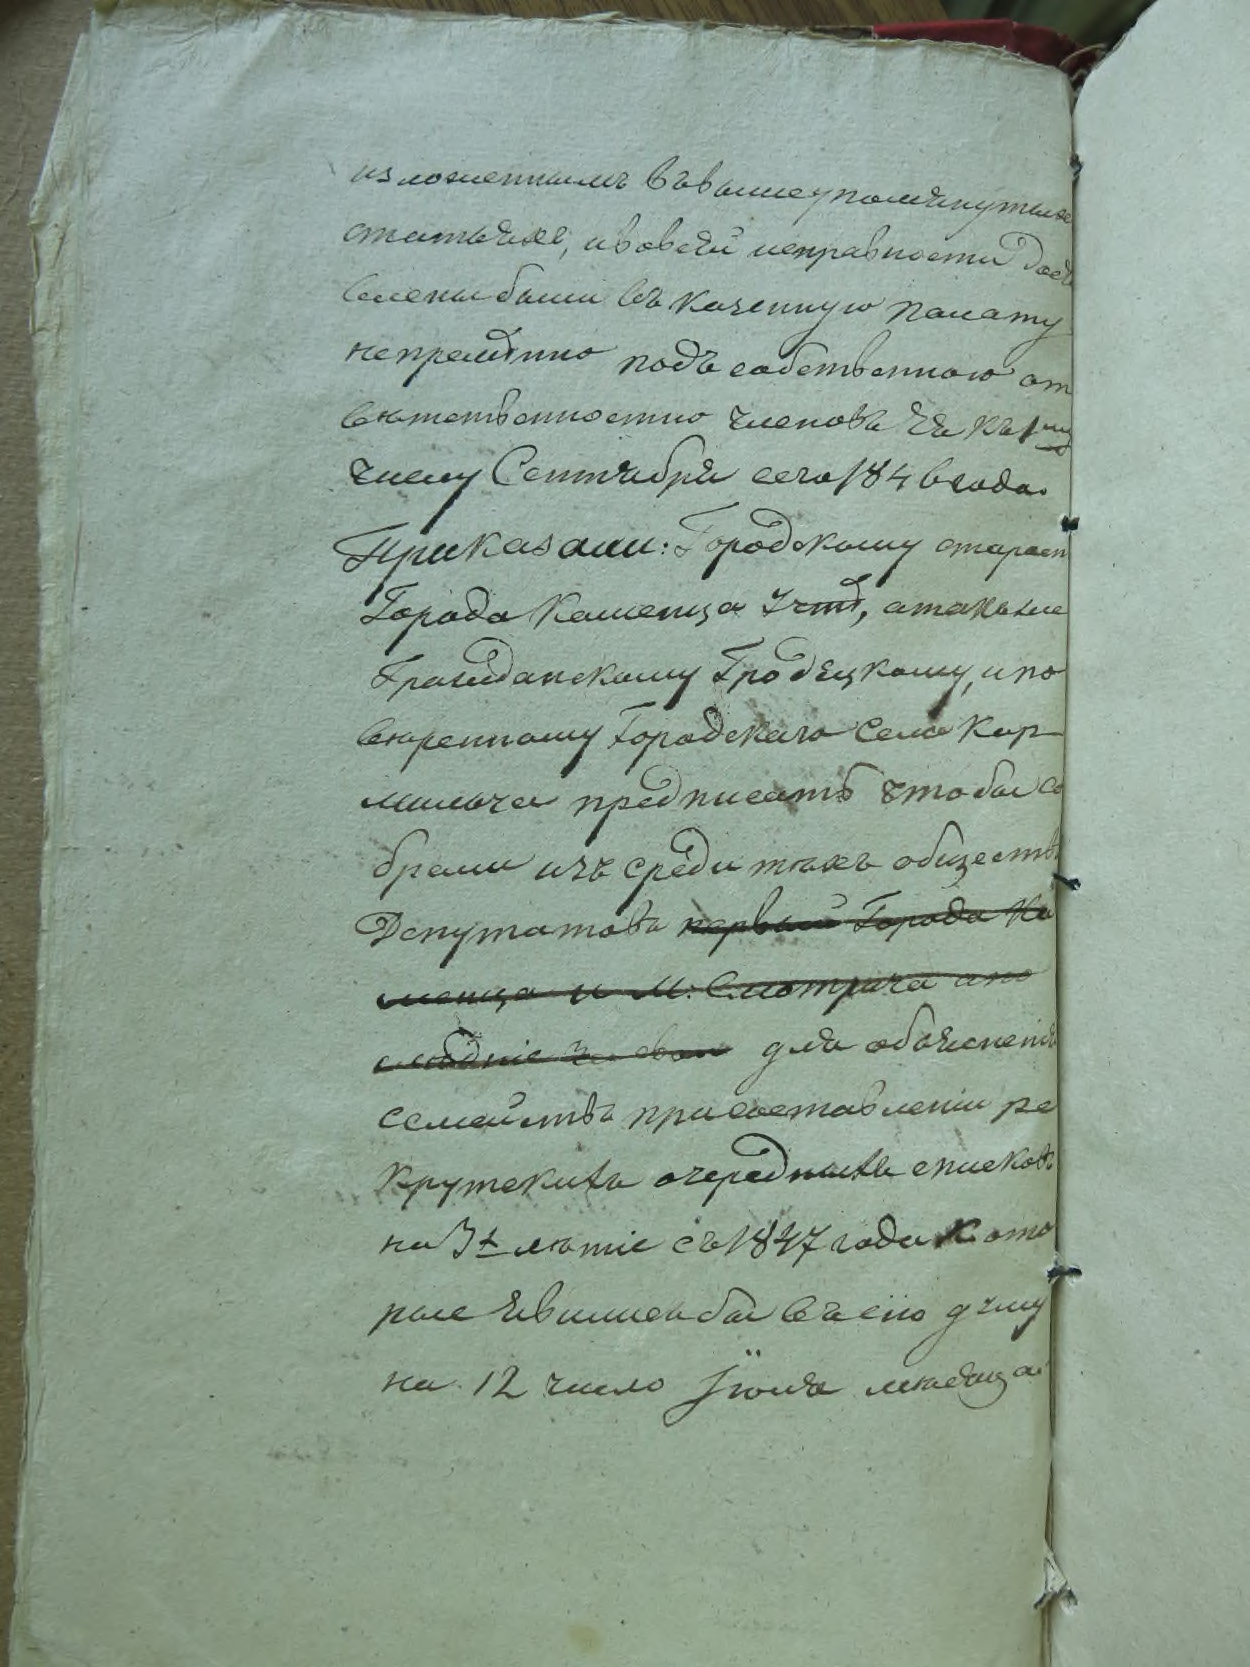 изложеннымъ въ вышеупомянутыхъ
статьяхъ, и во всей исправности дос
влены были въ Казенную Палату
непремѣнно подъ собственною от
вѣтственностію членовъ Ея къ 1му
числу Сентября сего 1846 года.
Приказали: Городскому старост
Города Каменца, а также
Гражданскому Гродецкому, и по
вѣренному Городскаго Села Кар
мильча предписать чтобы со
брали изъ среди тѣхъ обществъ
Депутатовъ первый Города Ка
менца и М: Смотрича а по
слѣдніе для объясненія
семействъ при составленіи ре
крутскихъ очередныхъ списковъ
на 3х лѣтіе съ 1847 года кото
рые явились бы въ сію думу
на 12 число Іюля мѣсяца